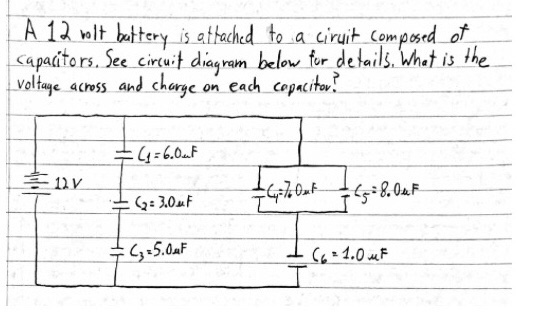 A 12 volt battery is attached to a ciruit composed of
capacitors. See circuit diagram below for details. What is the
voltage across and charge on each capacitor?
C1=6.0uF
12V
C4=7.0uF
C5=8.0uF
C2=3.0uF
C3=5.0uF
C6=1.0uF